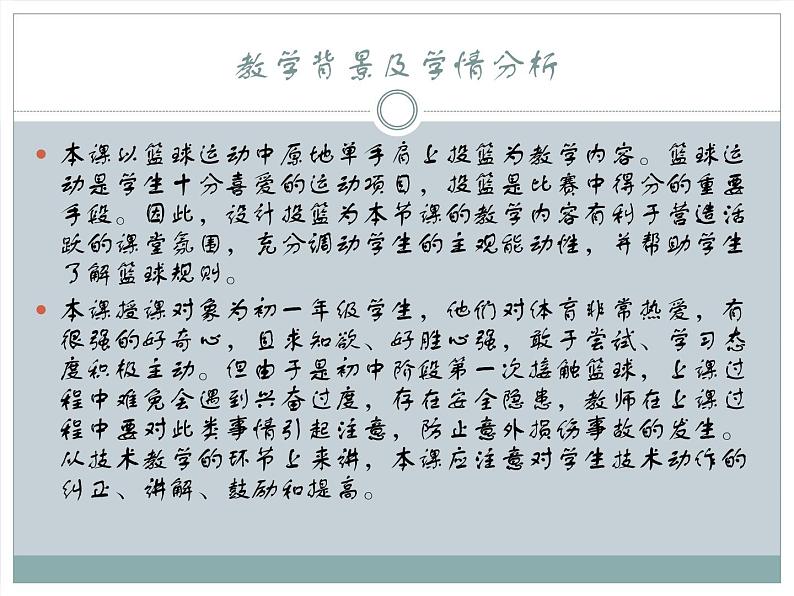 教学背景及学情分析
本课以篮球运动中原地单手肩上投篮为教学内容。篮球运
动是学生十分喜爱的运动项目，投篮是比赛中得分的重要
手段。因此，设计投篮为本节课的教学内容有利于营造活
跃的课堂氛围，充分调动学生的主观能动性，并帮助学生
了解篮球规则。
本课授课对象为初一年级学生，他们对体育非常热爱，有
很强的好奇心，且求知欲、好胜心强，敢于尝试、学习态
度积极主动。但由于是初中阶段第一次接触篮球，上课过
程中难免会遇到兴奋过度，存在安全隐患，教师在上课过
程中要对此类事情引起注意，防止意外损伤事故的发生。
从技术教学的环节上来讲，本课应注意对学生技术动作的
纠正、讲解、鼓励和提高。